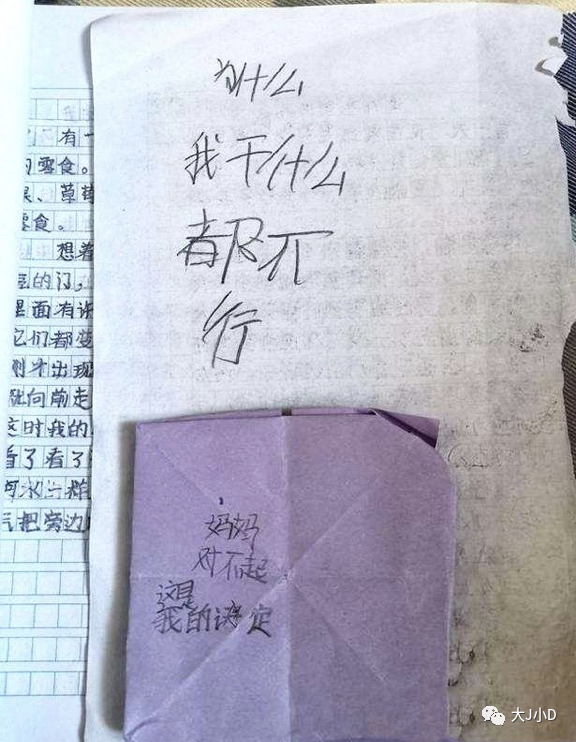 为什么
我干什么
都不
行
妈妈
对不起
这是
我的决定
有一
零食。
、草莓
零食。
想着
的门，
里面有许
它们都变
刚才出现
向前走
这时我的
看了看了
河水
把旁边
大J小D